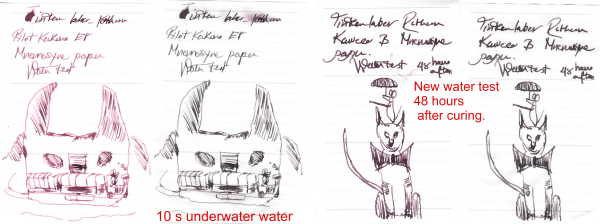 Pilot Kakuno EF
Mnemosyne paper
Water test
Pilot Kakuno EF
Mnemosyne paper
Water test
10 s underwater water
Kaweco B Mnemosyne
paper.
Water test 48 hours
after
Kaweco B Mnemosyne
paper.
Water test 48 hours
after
New water test
48 hours
after curing.